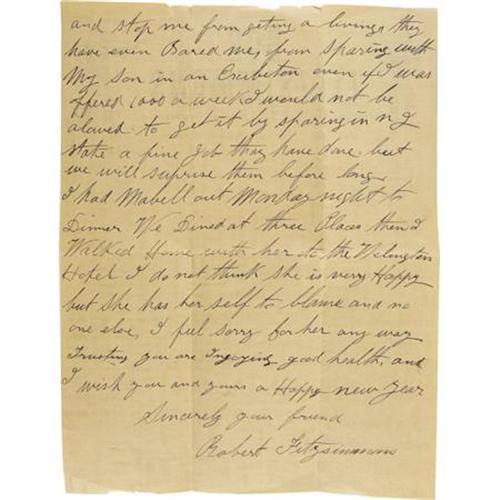 and stop me from geting a living, they
have even Bared me, from sparing with
My son in an Exibeton even if I was
offered 1000 a week I would not be
alowed to get it by sparing in N.Y
state a fine Job they have done but
we will suprise them before long
I had Mabell out Monday night to
Dinner We Dined at three Places then I
Walked Home with her to the
Hotel I do not think she is verry Happy
but she has her self to blame and no
one else, I feel sorry for her any way
Trusting you are Injoying good health, and
I wish you and yours a Happy new year
Sincerely your friend
Robert Fitzsimmons